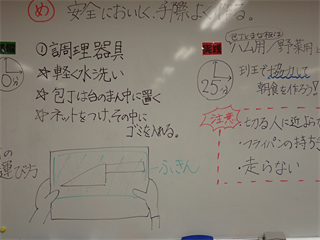 め 安全においしく、手際よく作る。
①調理器具
☆軽く水洗い
☆包丁は台のまん中に置く
☆ネットをつけ、その中に
ゴミを入れる。
運び方
ふきん
ハム用/野菜用
班で協力して
朝食を作ろう!!
25分
注意
・切る人に近よら
・フライパンの持ち
・走らない